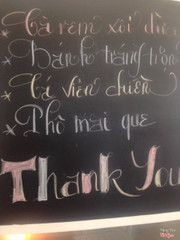 * Cà rem xôi dừa
* Bánh tráng trộn
* Cá viên chiên
* Phô mai que
Thank You